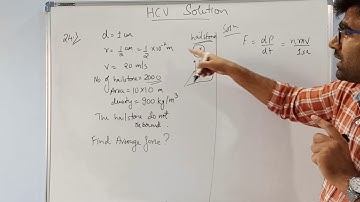 HCV Solution
24)
d = 1 cm
r = 1/2 cm = 1/2 × 10⁻² m
v = 20 m/s
No of hailstone = 2000
Area = 10×10 m
density = 900 kg/m³
The hailstone do not
rebound.
Find Average force?
hailstone
Solⁿ:
F = dP/dt = nmv/1sec